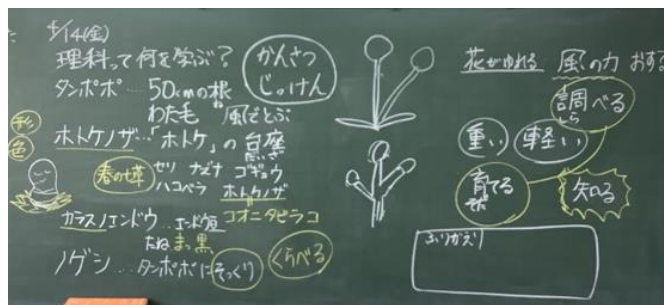 4/14(金)
理科って何を学ぶ?
かんさつ
じっけん
タンポポ…50cmの根
ね
わた毛 風でとぶ
ホトケノザ…「ホトケ」の台座
だいざ
形
色
春の七草
セリ ナズナ ゴギョウ
ハコベラ ホトケノザ
コオニタビラコ
カラスノエンドウ…エンドウ豆
たね まっ黒
ノゲシ…タンポポにそっくり
くらべる
花がゆれる 風の力 おす
調べる
しら
重い 軽い
育てる
知る
ふりかえり